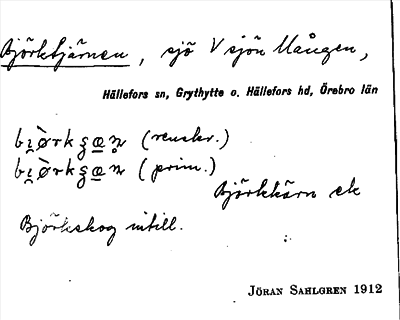 Björktjärnen, sjö V sjön Mången,
Hällefors sn, Grythytte o. Hällefors hd, Örebro län
(renskr.)
(prim.)
Björkkärn ek
Björkskog intill.
JÖRAN SAHLGREN 1912